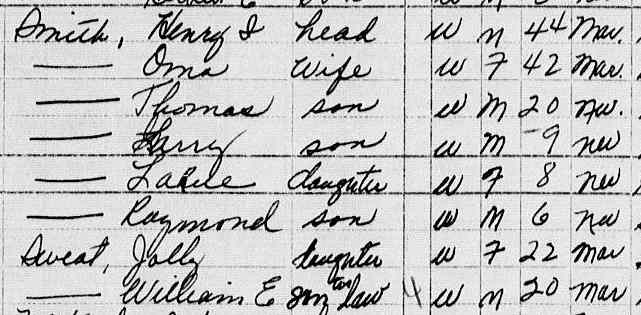 Smith, Henry I head W M 44 Mar.
— Oma wife W F 42 Mar.
— Thomas son W M 20 Nev.
— Harry son W M 9 nev
— daughter W F 8 nev
— Raymond son W M 6 nev
Sweat, Jolly daughter W F 22 Mar
— William E son in law W M 20 Mar